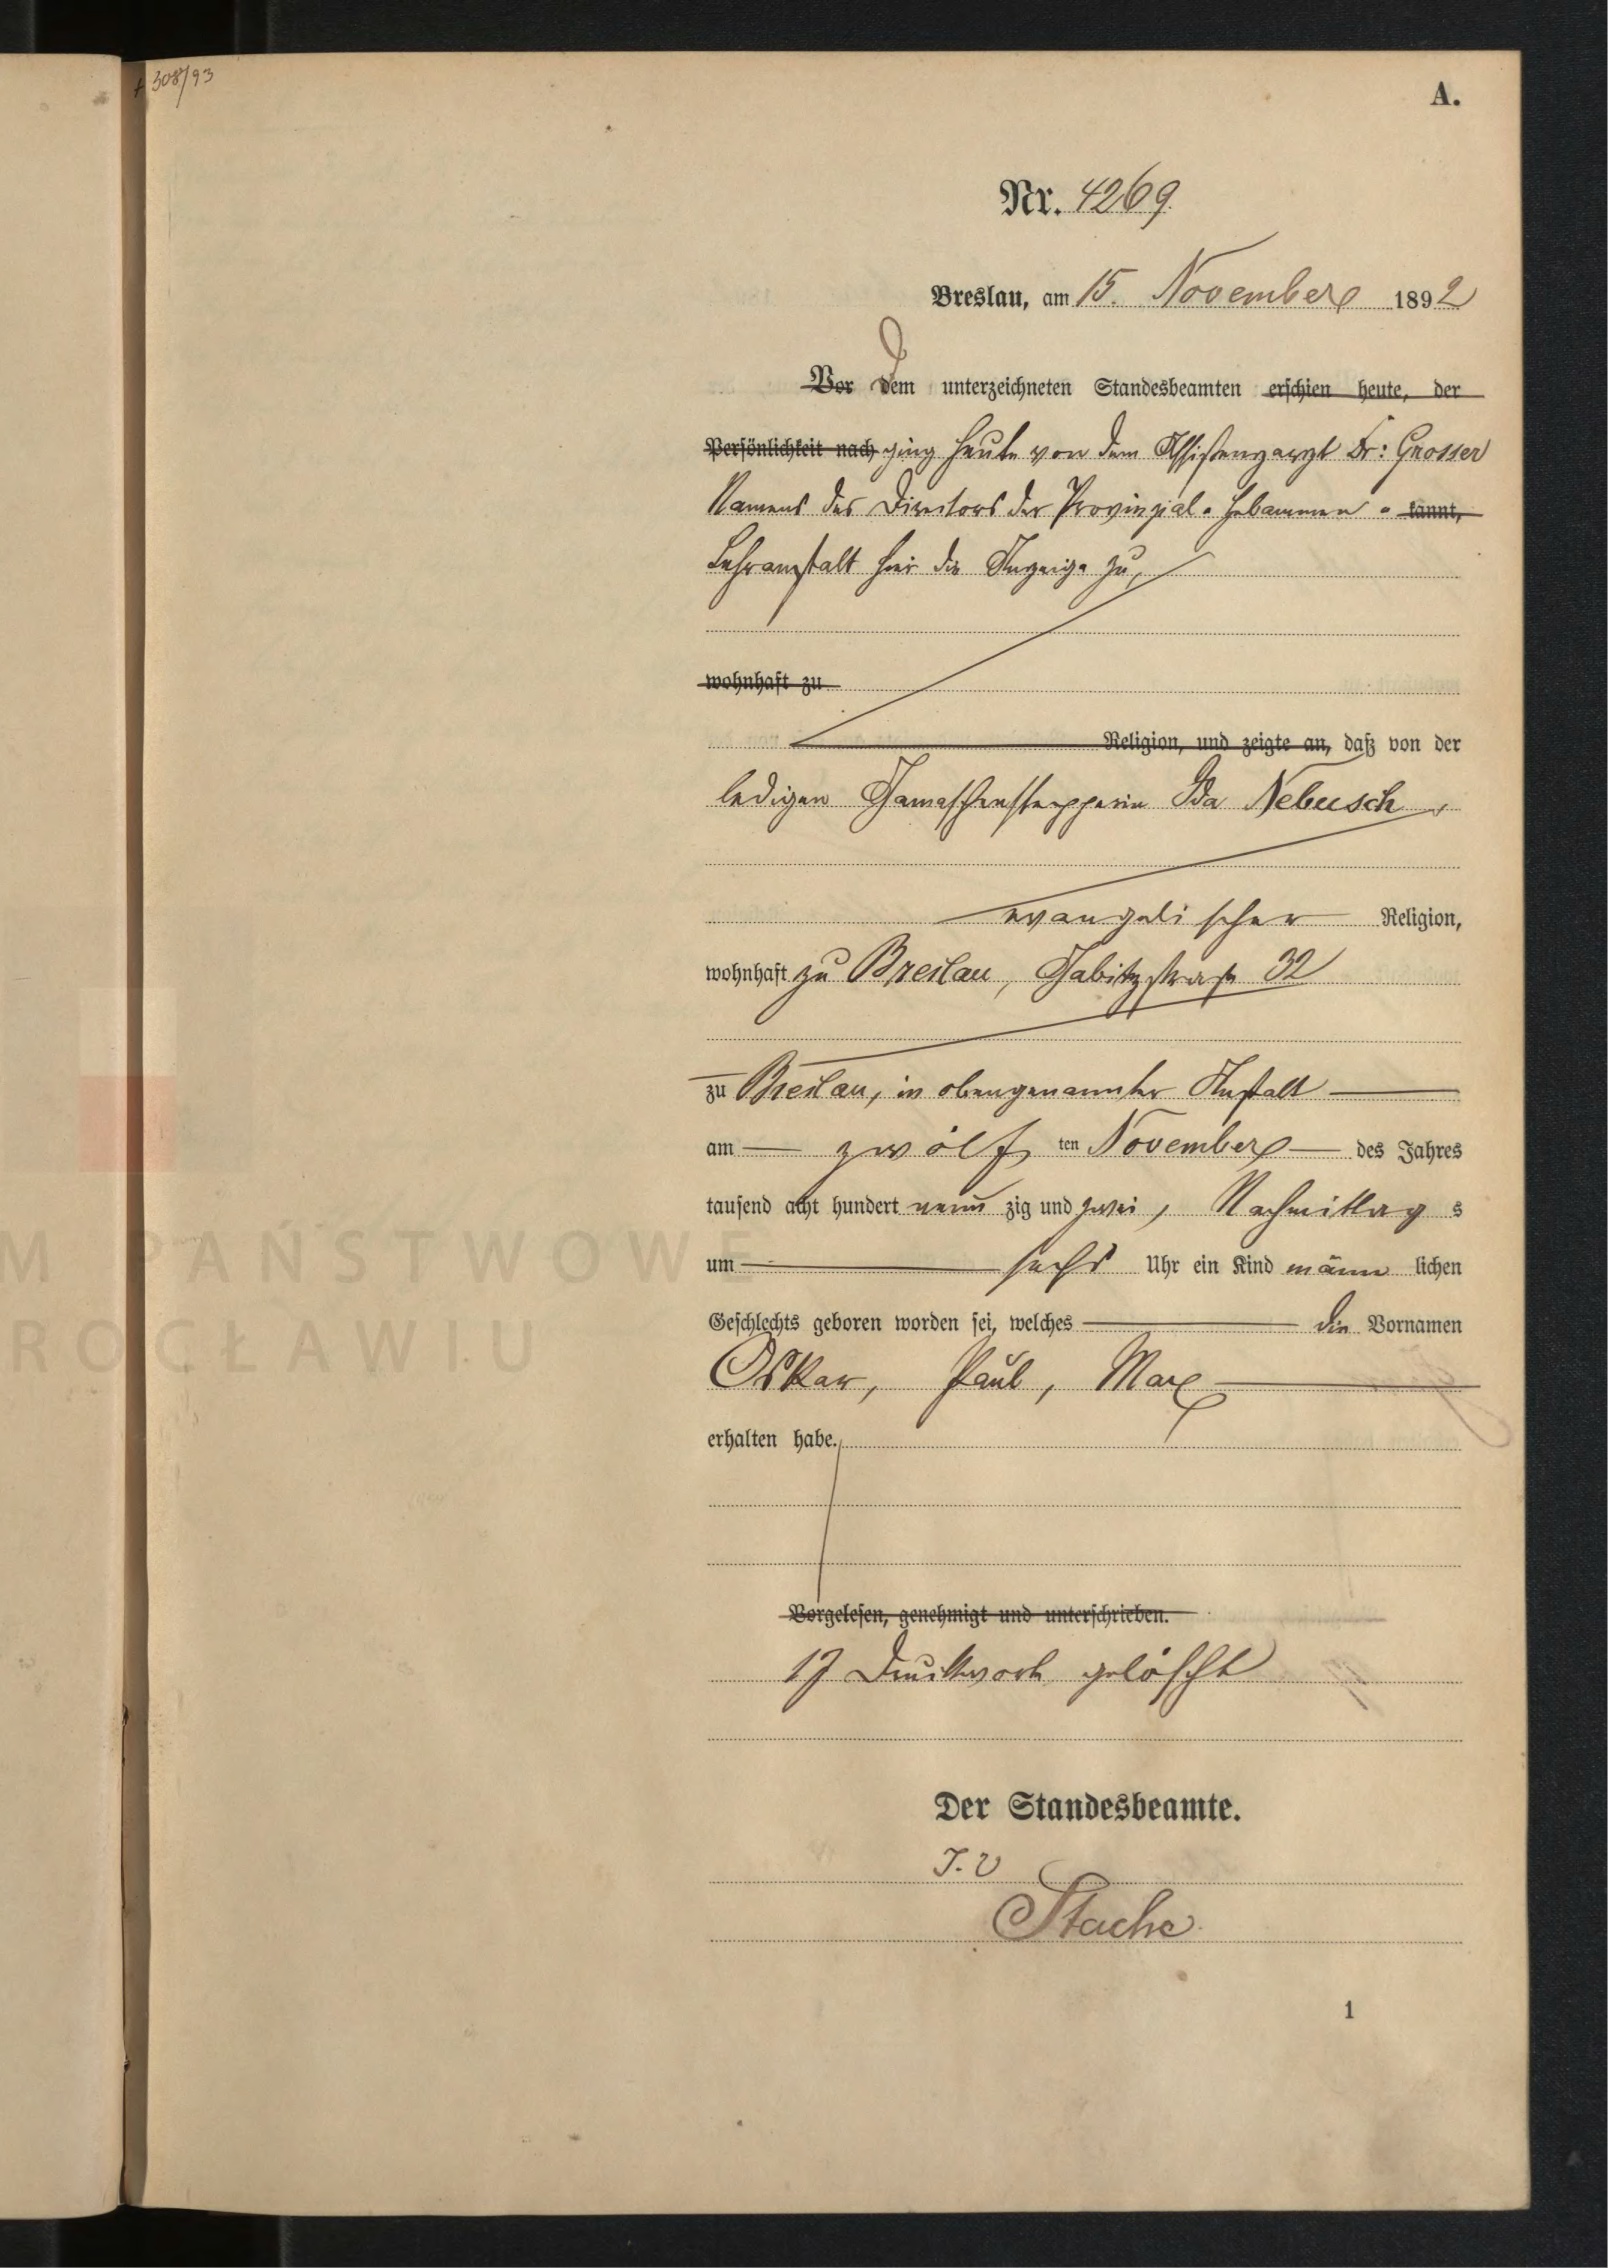 + 308/93
A.
Nr. 4269
Breslau, am 15. November 1892
Vor Dem unterzeichneten Standesbeamten erschien heute, der
Persönlichkeit nach ging heute von dem Assistenzarzt Dr: Grosser
Namens des Directors der Provinzial-Hebammen- kannt,
Lehranstalt hier die Anzeige zu,
wohnhaft zu
Religion, und zeigte an, daß von der
ledigen Gamaschenstepperin Ida Nebusch,
evangelischer Religion,
wohnhaft zu Breslau, Gabitzstraße 32
zu Breslau, in obengenannter Anstalt
am zwölf ten November des Jahres
tausend acht hundert neun zig und zwei, Nachmittag s
um sechs Uhr ein Kind männ lichen
Geschlechts geboren worden sei, welches die Vornamen
Oskar, Paul, Max
erhalten habe.
Vorgelesen, genehmigt und unterschrieben.
17 Druckworte gelöscht
Der Standesbeamte.
I. V
Stache
1
M PAŃSTWOWE
ROCŁAWIU